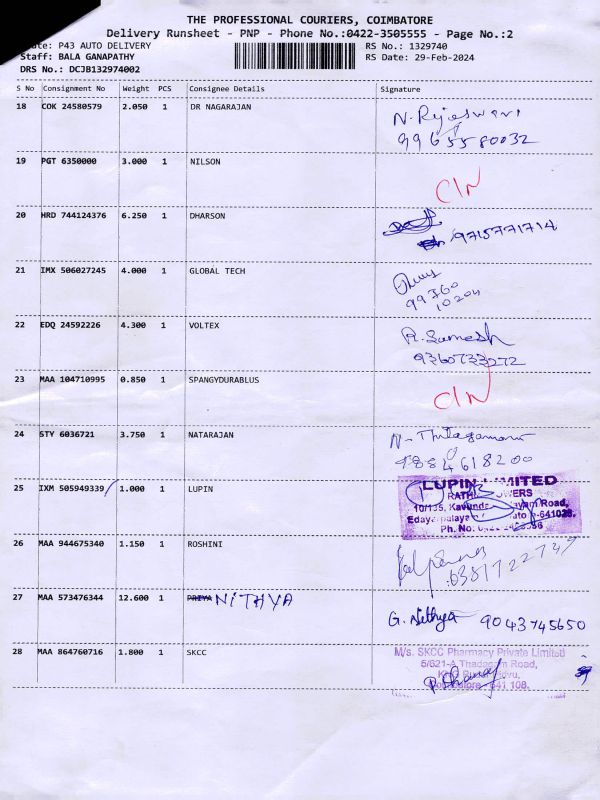 THE PROFESSIONAL COURIERS, COIMBATORE
Delivery Runsheet - PNP - Phone No.:0422-3505555 - Page No.:2
P43 AUTO DELIVERY RS No.: 1329740
Staff: BALA GANAPATHY RS Date: 29-Feb-2024
DRS No.: DCJB132974002
S No Consignment No Weight PCS Consignee Details Signature
18 COK 24580579 2.050 1 DR NAGARAJAN N. Rajeswari
9965580032
19 PGT 6350000 3.000 1 NILSON
C/N
20 HRD 744124376 6.250 1 DHARSON
9715771714
21 IMX 506027245 4.000 1 GLOBAL TECH
99360
10204
22 EDQ 24592226 4.300 1 VOLTEX
9360733272
23 MAA 104710995 0.850 1 SPANGYDURABLUS
C/N
24 STY 6036721 3.750 1 NATARAJAN
9884618200
25 IXM 505949339 1.000 1 LUPIN LUPIN LIMITED
Road,
26 MAA 944675340 1.150 1 ROSHINI
27 MAA 573476344 12.600 1 PRIYA NITHYA
G. Nithya 9043745650
28 MAA 864760716 1.800 1 SKCC M/s. SKCC Pharmacy Private Limited
5/621-A Thadagam Road,
641 108.